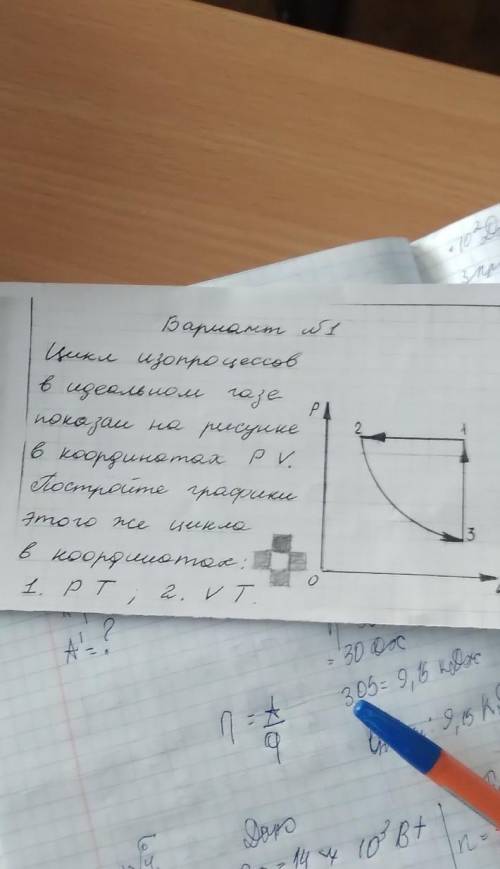 Вариант №1
Цикл изопроцессов
в идеальном газе
показан на рисунке
в координатах P V.
Постройте графики
этого же цикла
в координатах:
1. P T ; 2. V T.
P
2
1
3
0
A' = ?
= 30 Дж
305 = 9,15 кДж
η = A/Q
9,15 к
Дано
= 14 · 10³ Вт
n =